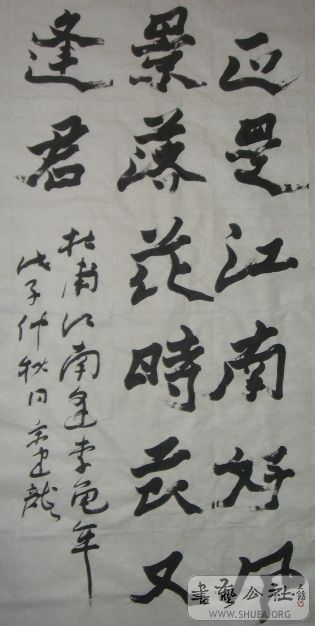 正是江南好风
景落花時节又
逢君
杜甫江南逢李龟年
戊子仲秋月建龍
書藝公社
WWW.SHUFAJ.ORG